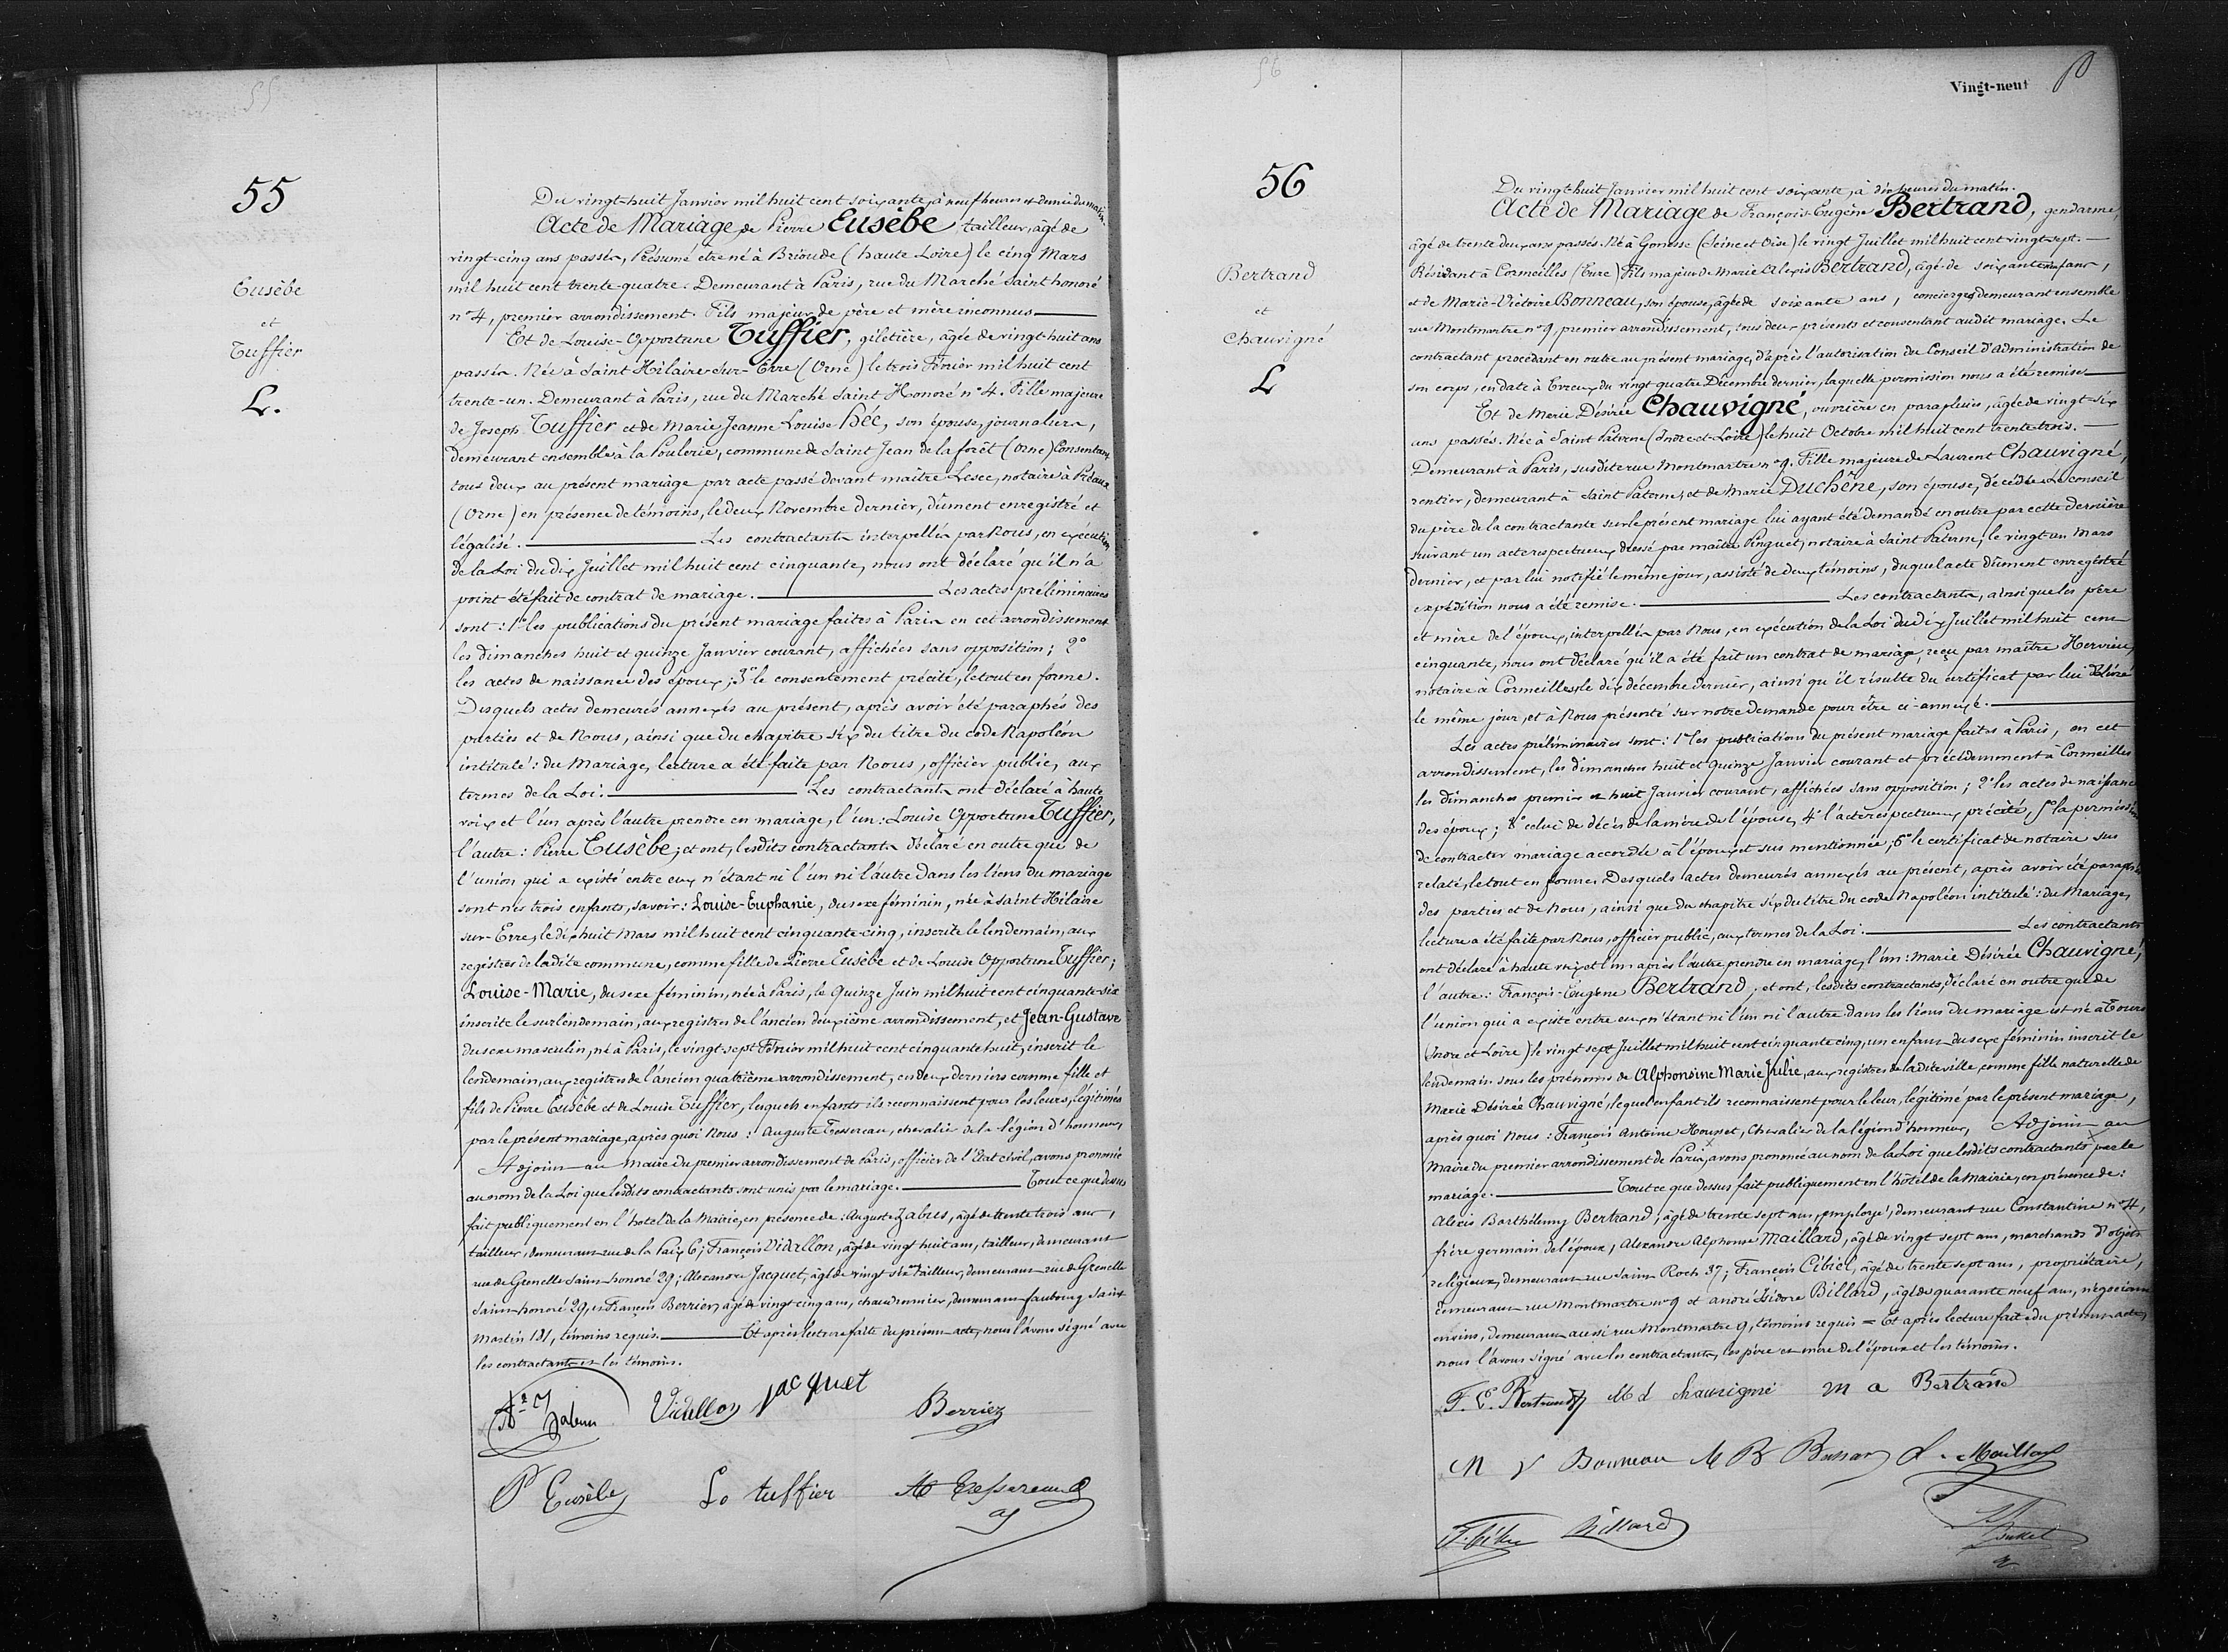 55
55
Eusèbe
et
Tuffier
L.
Du vingt-huit Janvier mil huit cent soixante, à neuf heures et demie du matin.
Acte de Mariage de Pierre Eusèbe, tailleur, âgé de
vingt-cinq ans passés, Présumé etre né à Brioude (haute Loire) le cinq Mars
mil huit cent trente-quatre. Demeurant à Paris, rue du Marché Saint honoré
n° 4, premier arrondissement. Fils majeur de père et mère inconnus.
Et de Louise-Opportune Tuffier, giletière, âgée de vingt-huit ans
passés. Née à Saint Hilaire-Sur-Erre (Orne) le trois Février mil huit cent
trente-un. Demeurant à Paris, rue du Marché Saint Honoré n° 4. Fille majeure
de Joseph Tuffier et de Marie Jeanne Louise Hée, son épouse, journaliers,
demeurant ensemble à la Poulerie, commune de Saint Jean de la forêt (Orne) Consentans
tous deux au présent mariage par acte passé devant maître Lesec, notaire à
(Orne) en présence de témoins, le deux Novembre dernier, dûment enregistré et
légalisé. Les contractants interpellés par Nous, en exécution
de la Loi du dix Juillet mil huit cent cinquante, nous ont déclaré qu'il n'a
point été fait de contrat de mariage. Les actes préliminaires
sont: 1° les publications du présent mariage faites à Paris en cet arrondissement
les dimanches huit et quinze Janvier courant, affichées sans opposition; 2°
les actes de naissance des époux; 3° le consentement précité, le tout en forme.
Desquels actes demeurés annexés au présent, après avoir été paraphés des
parties et de Nous, ainsi que du chapitre six du titre du code Napoléon
intitulé: du Mariage, lecture a été faite par Nous, officier public, aux
termes de la Loi. Les contractants ont déclaré à haute
voix et l'un après l'autre prendre en mariage, l'un: Louise Opportune Tuffier,
l'autre: Pierre Eusèbe; et ont, lesdits contractants déclaré en outre que de
l'union qui a existé entre eux n'étant ni l'un ni l'autre dans les liens du mariage
sont nés trois enfants, savoir: Louise-Euphanie, du sexe féminin, née à Saint Hilaire
sur-Erre, le dix huit Mars mil huit cent cinquante-cinq, inscrite le lendemain, aux
registres de ladite commune, comme fille de Pierre Eusèbe et de Louise Opportune Tuffier;
Louise-Marie, du sexe féminin, née à Paris, le Quinze Juin mil huit cent cinquante-six
inscrite le surlendemain, aux registres de l'ancien deuxième arrondissement, et Jean-Gustave
du sexe masculin, né à Paris, le vingt-sept Février mil huit cent cinquante huit, inscrit le
lendemain, aux registres de l'ancien quatrième arrondissement, ces deux derniers comme fille et
fils de Pierre Eusèbe et de Louise Tuffier, lesquels enfants ils reconnaissent pour les leurs, légitimés
par le présent mariage, après quoi Nous: Auguste Tessereau, chevalier de la légion d'honneur,
Adjoint au Maire du premier arrondissement de Paris, officier de l'Etat civil, avons prononcé
au nom de la Loi que lesdits contractants sont unis par le mariage. Tout ce que dessus
fait publiquement en l'hotel de la Mairie, en présence de: Auguste Zabus, âgé de trente trois ans,
tailleur, demeurant rue de la Paix 6; François Vidallon, âgé de vingt huit ans, tailleur, demeurant
rue de Grenelle Saint honoré 29; Alexandre Jacquet, âgé de vingt six ans tailleur, demeurant rue de Grenelle
Saint honoré 29, et François Berrier, âgé de vingt cinq ans, chaudronnier, demeurant faubourg Saint
Martin 181, témoins requis. Et après lecture faite du présent acte, nous l'avons signé avec
les contractants et les témoins.
Vidallon Jacquet Berrier
P Eusèbe Lo tuffier A Tessereau
aj
56
Vingt-neuf
56
Bertrand
et
Chauvigné
L
Du vingt-huit Janvier mil huit cent soixante, à dix heures du matin.
Acte de Mariage de François-Eugène Bertrand, gendarme,
âgé de trente deux ans passés. Né à Gonesse (Seine et Oise) le vingt Juillet mil huit cent vingt-sept.
Résidant à Cormeilles (Eure) Fils majeur de Marie Alexis Bertrand, âgé de soixante ans,
et de Marie-Victoire Bonneau, son épouse, âgée de soixante ans, concierges demeurant ensemble
rue Montmartre n° 9, premier arrondissement, tous deux présents et consentant audit mariage. Le
contractant procédant en outre au présent mariage, d'après l'autorisation du Conseil d'administration de
son corps, en date à Evreux du vingt quatre Décembre dernier, laquelle permission nous a été remise
Et de Marie Désirée Chauvigné, ouvrière en parapluies, âgée de vingt-six
ans passés. Née à Saint Paterne (Indre-et-Loire) le huit Octobre mil huit cent trente trois.
Demeurant à Paris, susdite rue Montmartre n° 9. Fille majeure de Laurent Chauvigné,
rentier, demeurant à Saint Paterne, et de Marie Duchêne, son épouse, décédée. Le conseil
du père de la contractante sur le présent mariage lui ayant été demandé en outre par cette dernière
suivant un acte respectueux dressé par maître Pinguet, notaire à Saint Paterne, le vingt un Mars
dernier, et par lui notifié le même jour, assisté de deux témoins, duquel acte dûment enregistré
expédition nous a été remise. Les contractants, ainsi que les père
et mère de l'époux, interpellés par Nous, en exécution de la Loi du dix Juillet mil huit cent
cinquante, nous ont déclaré qu'il a été fait un contrat de mariage, reçu par maître Hervieu,
notaire à Cormeilles, le dix décembre dernier, ainsi qu'il résulte du certificat par lui délivré
le même jour, et à Nous présenté sur notre demande pour être ci-annexé.
Les actes préliminaires sont: 1° les publications du présent mariage faites à Paris, en cet
arrondissement, les dimanches huit et Quinze Janvier courant et précédemment à Cormeilles
les dimanches premier et huit Janvier courant, affichées sans opposition; 2° les actes de naissance
des époux; 3° celui de décès de la mère de l'épouse, 4° l'acte respectueux précité, 5° la permission
de contracter mariage accordée à l'époux et sus mentionnée; 6° le certificat de notaire sus
relaté, le tout en forme. Desquels actes demeurés annexés au présent, après avoir été paraphés
des parties et de Nous, ainsi que du chapitre six du titre du code Napoléon intitulé: du Mariage,
lecture a été faite par Nous, officier public, aux termes de la Loi. Les contractants
ont déclaré à haute voix et l'un après l'autre prendre en mariage, l'un: Marie Désirée Chauvigné,
l'autre: François-Eugène Bertrand; et ont, lesdits contractants, déclaré en outre que de
l'union qui a existé entre eux n'étant ni l'un ni l'autre dans les liens du mariage est né à Tours
(Indre et Loire) le vingt sept Juillet mil huit cent cinquante cinq, un enfant du sexe féminin inscrit le
lendemain sous les prénoms de Alphonsine Marie Julie, aux registres de ladite ville, comme fille naturelle de
Marie Désirée Chauvigné, lequel enfant ils reconnaissent pour le leur, légitimé par le présent mariage,
après quoi Nous: François Antoine Housset, Chevalier de la légion d'honneur, Adjoint au
Maire du premier arrondissement de Paris, avons prononcé au nom de la Loi que lesdits contractants par le
mariage. Tout ce que dessus fait publiquement en l'hôtel de la Mairie, en présence de:
Alexis Barthélemy Bertrand, âgé de trente sept ans, employé, demeurant rue Constantine n° 4,
frère germain de l'époux, Alexandre Alphonse Maillard, âgé de vingt sept ans, marchand d'objets
religieux, demeurant rue Saint Roch 37; François Cibiel, âgé de trente sept ans, propriétaire,
demeurant rue Montmartre n° 9 et andré Isidore Billard, âgé de quarante neuf ans, négociant
en vins, demeurant aussi rue Montmartre 9, témoins requis = Et après lecture faite du présent acte,
nous l'avons signé avec les contractants, les père et mère de l'époux et les témoins.
F. E. Bertrand M d chauvigné m a Bertrand
M V Bonneau A. Maillard
Billard